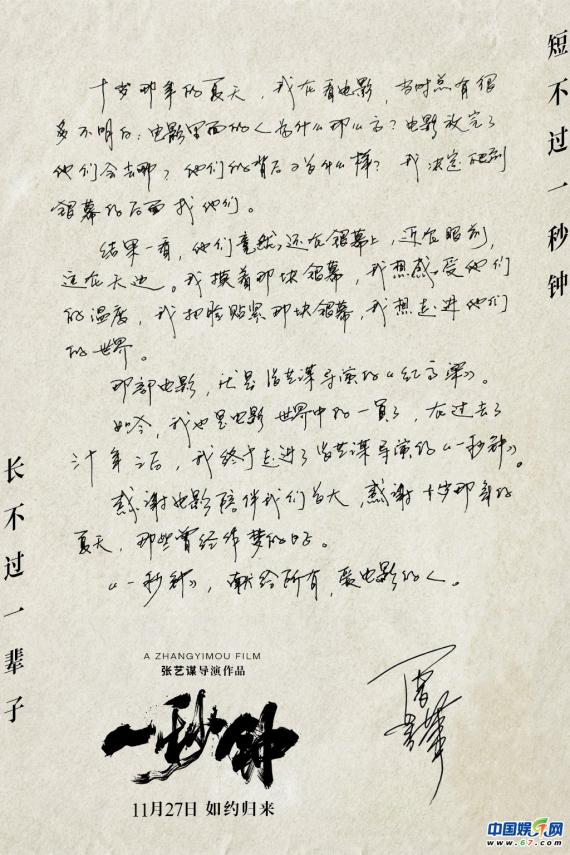 短不过一秒钟
十岁那年的夏天，我在看电影，当时总有很
多不明白：电影里面的人为什么那么高？电影放完了
他们会去哪？他们的背后又为什么样？我决定爬到
银幕的后面找他们。
结果一看，他们竟然还在银幕上，近在眼前，
远在天边。我摸着那块银幕，我想感受他们
的温度，我把脸贴紧那块银幕，我想走进他们
的世界。
那部电影，就是张艺谋导演的《红高粱》。
如今，我也是电影世界中的一員了，在过去了
卅年之后，我终于走进了张艺谋导演的《一秒钟》。
感谢电影陪伴我们长大，感谢十岁那年的
夏天，那些曾经作梦的日子。
《一秒钟》，献给所有，爱电影的人。
长不过一辈子
A ZHANGYIMOU FILM
张艺谋导演作品
一秒钟
11月27日 如约归来
中国娱乐网
www.67.com